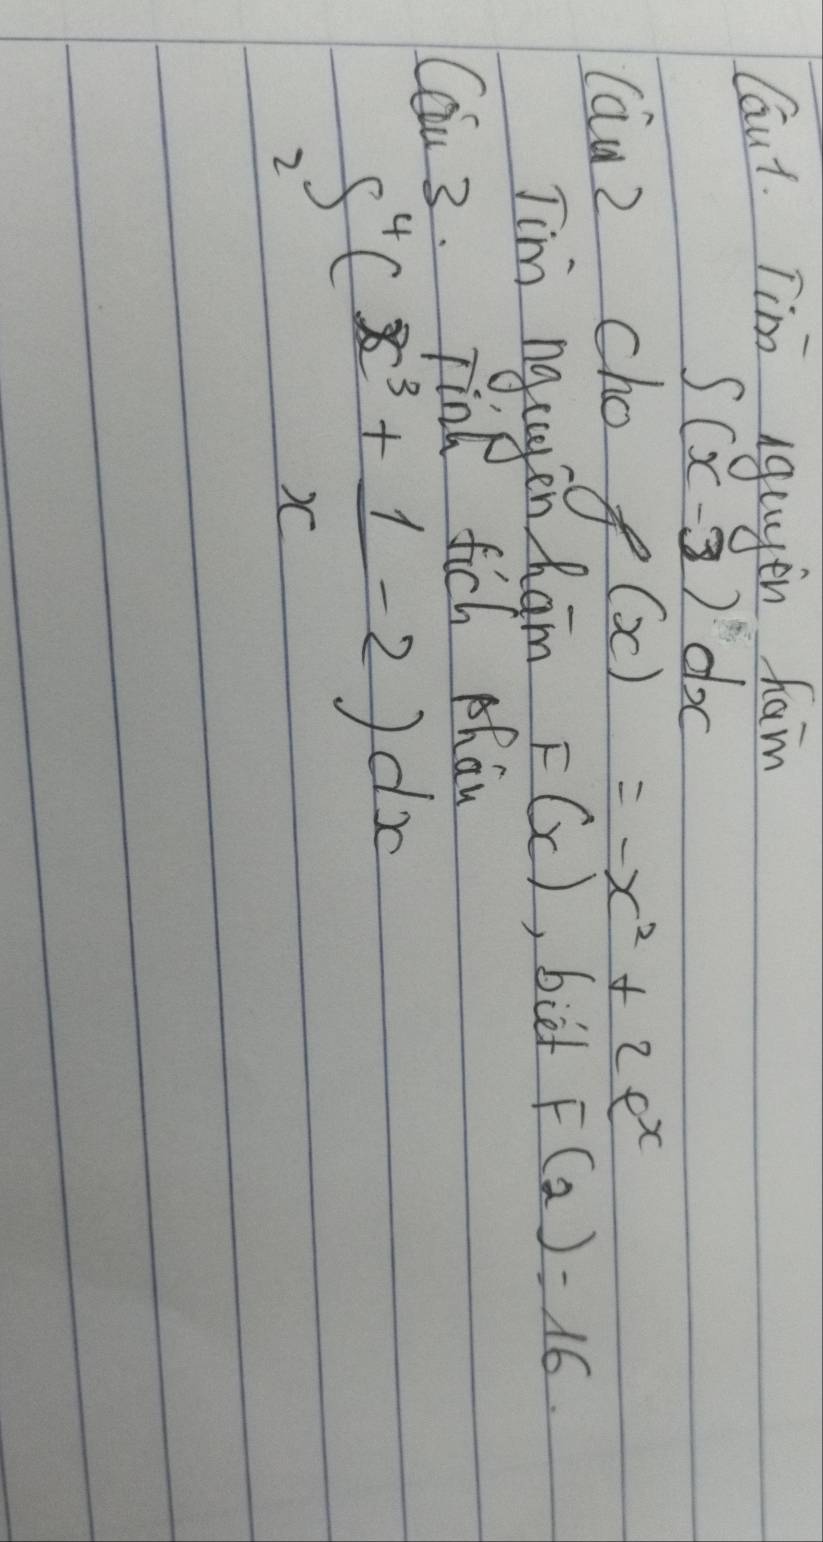 Câu 1. Tìm nguyên hàm
∫(x-3) dx
Câu 2 Cho f(x) = -x² + 2e^x
Tìm nguyên hàm F(x), biết F(2)=16.
Câu 3. Tính tích phân
₂∫⁴(x³ + 1/x - 2) dx